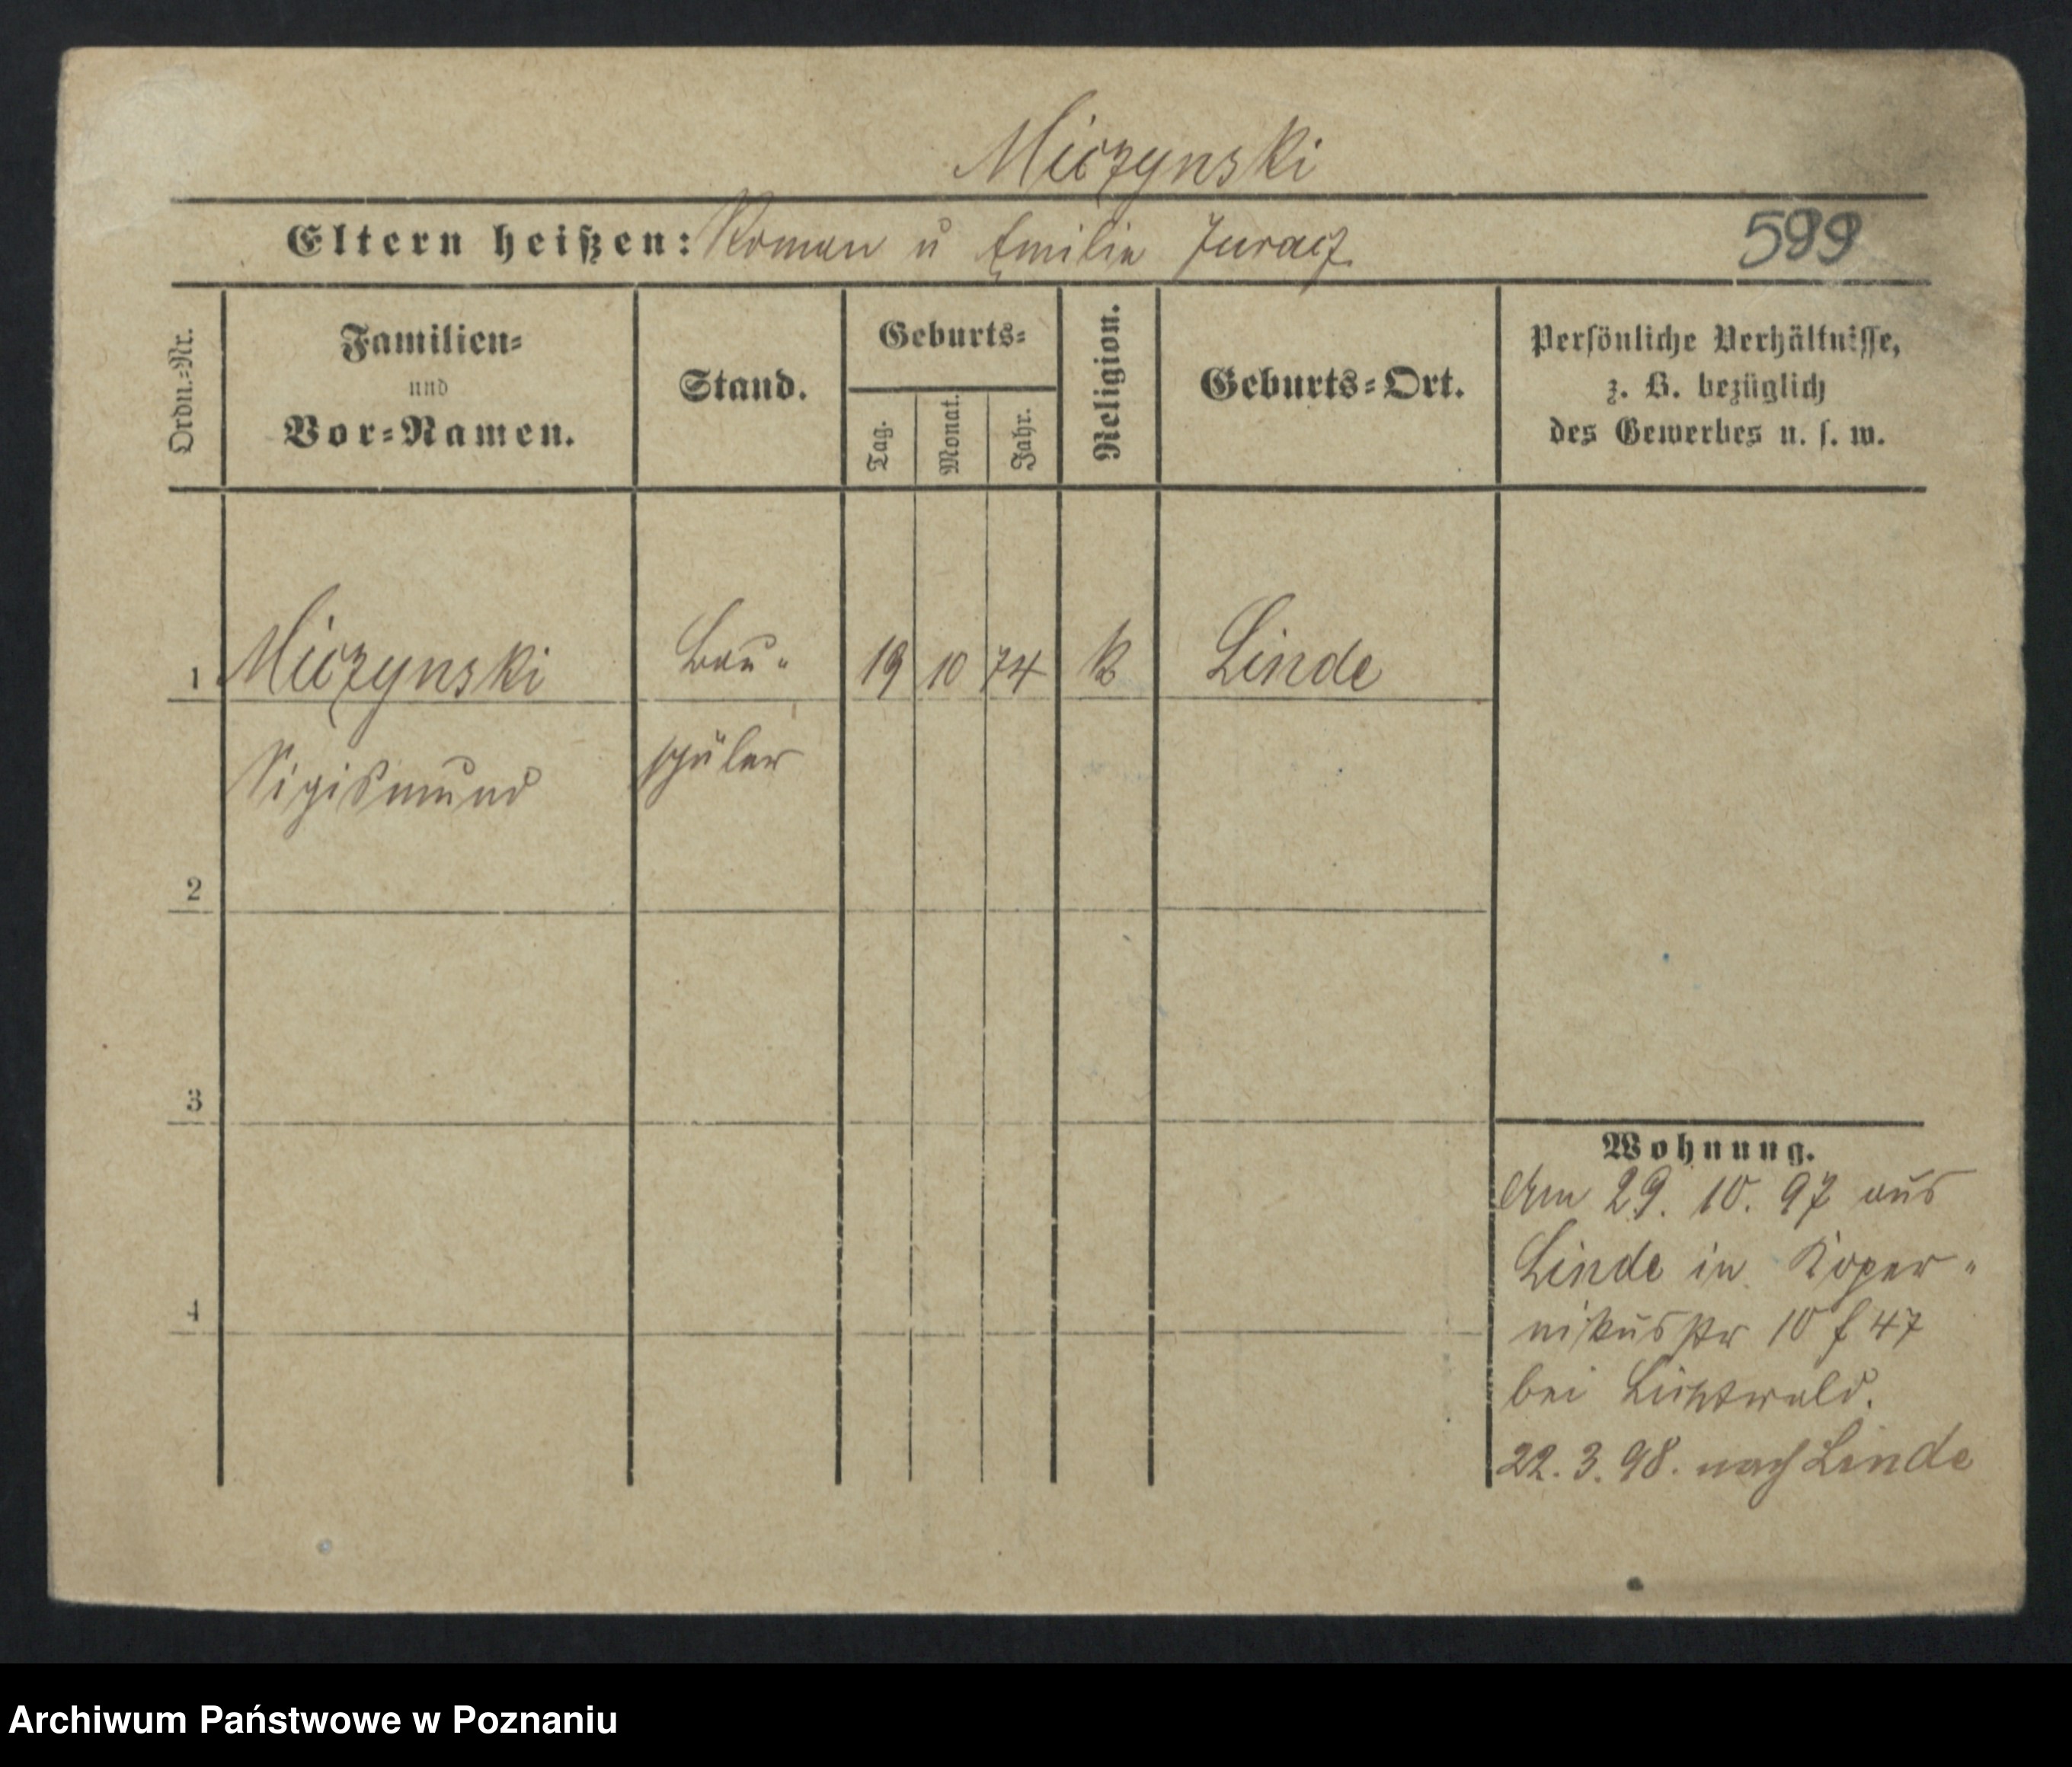 Miczynski
Eltern heißen: Roman u Emilie Juracz
599
Ordn.-Nr.
Familien-
und
Vor-Namen.
Stand.
Geburts-
Tag.
Monat.
Jahr.
Religion.
Geburts-Ort.
Persönliche Verhältnisse,
z. B. bezüglich
des Gewerbes u. s. w.
1 Miczynski Bau- 19 10 74 k Linde
Sigismund schüler
2
3
4
Wohnung.
Am 29. 10. 97 aus
Linde in Koper-
nikusstr 10 f 47
bei Lichtwald.
22. 3. 98. nach Linde
Archiwum Państwowe w Poznaniu